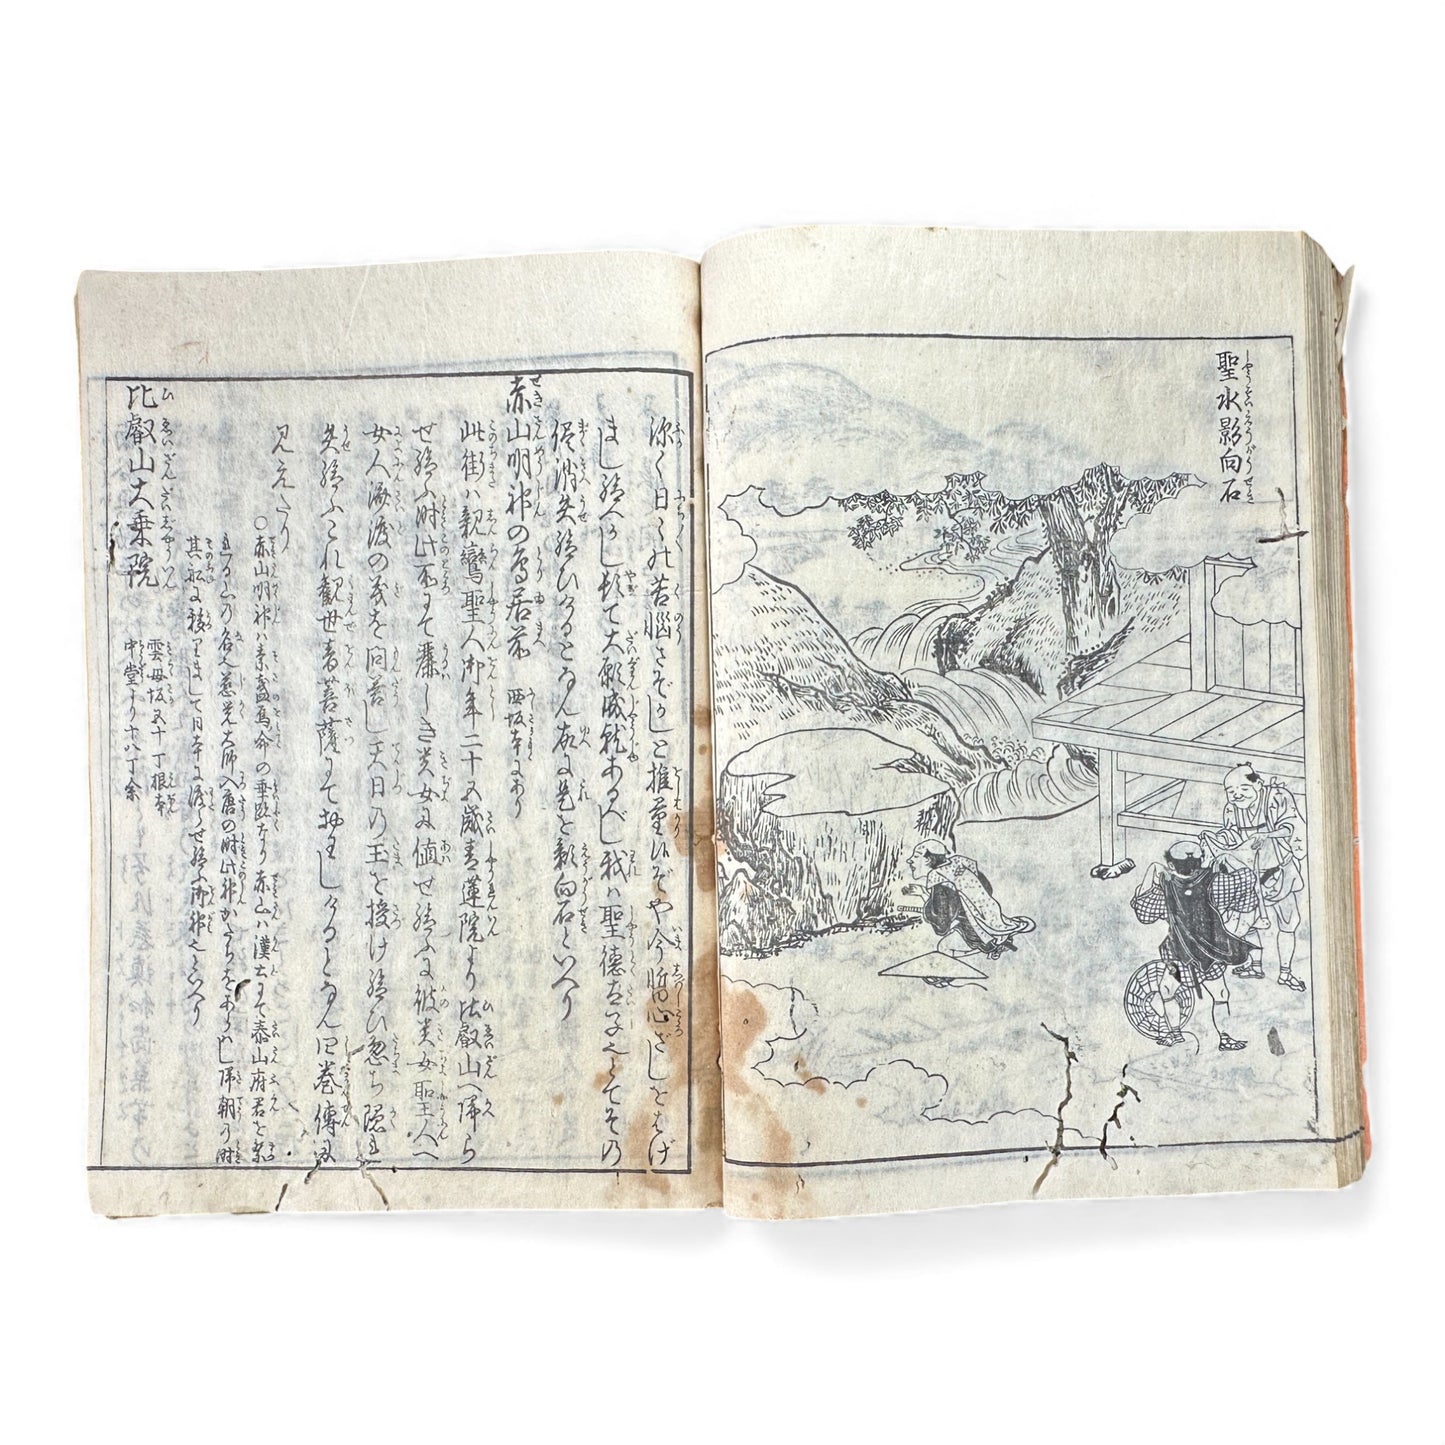 聖水影向石
深く日々の苦悩さぞかしと推量候ぞや今暫心ざしをはげ
まし給へかし頓て大願成就あるべし我ハ聖徳太子也とてその
侭消失給ひけるとなん故に是を影向石といへり
赤山明神の鳥居前 西坂本にあり
此街ハ親鸞聖人御年二十六歳青蓮院より比叡山へ帰ら
せ給ふ時此所にて麗しき美女に値せ給ふに彼美女聖人へ
女人済渡の義を問答し天日の玉を授け給ひ忽ち隠れ
失給ふこれ観世音菩薩にて在しけるとなん四巻傳に
見えたり
○赤山明神ハ素盞烏命の垂跡なり赤山ハ漢土にて泰山府君を祭
れる山の名也慈覚大師入唐の時此神かたちをあらハし帰朝の時
其舩に移りまして日本に渡らせ給ふ御神也といへり
比叡山大乗院 雲母坂五十丁根本
中堂より十八丁余